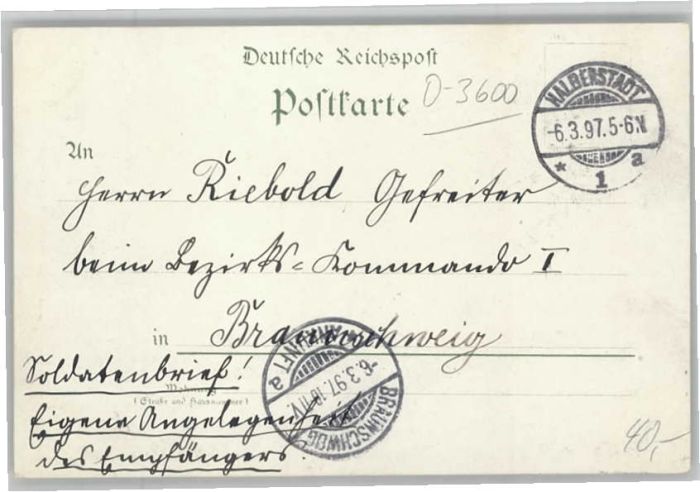 Deutsche Reichspost
Postkarte
D-3600
HALBERSTADT
-6.3.97.5-6N
* 1 a
An
Herrn Riebold, Gefreiter
beim Bezirks-Kommando I
in Braunschweig
Soldatenbrief!
Wohnung
(Straße und Hausnummer)
Eigene Angelegenheit
des Empfängers
ANKUNFT a
-6.3.97.
BRAUNSCHWEIG
40,-